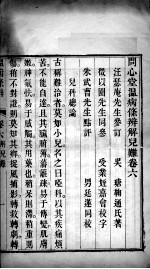 問心堂溫病條辨解兒難卷六
汪瑟庵先生參訂　吳瑭鞠通氏著
徵以園先生同參　受業姪嘉會校字
朱武曹先生點評　男廷蓮同校
兒科總論
古稱難治者莫如小兒名之曰啞科以其疾痛煩
苦不能自達且其臟腑薄藩籬疏易於傳變肌膚
嫩神氣怯易於感觸其用藥也稍呆則滯稍重則
傷稍不對證則莫知其鄉捉風捕影轉救轉劇轉